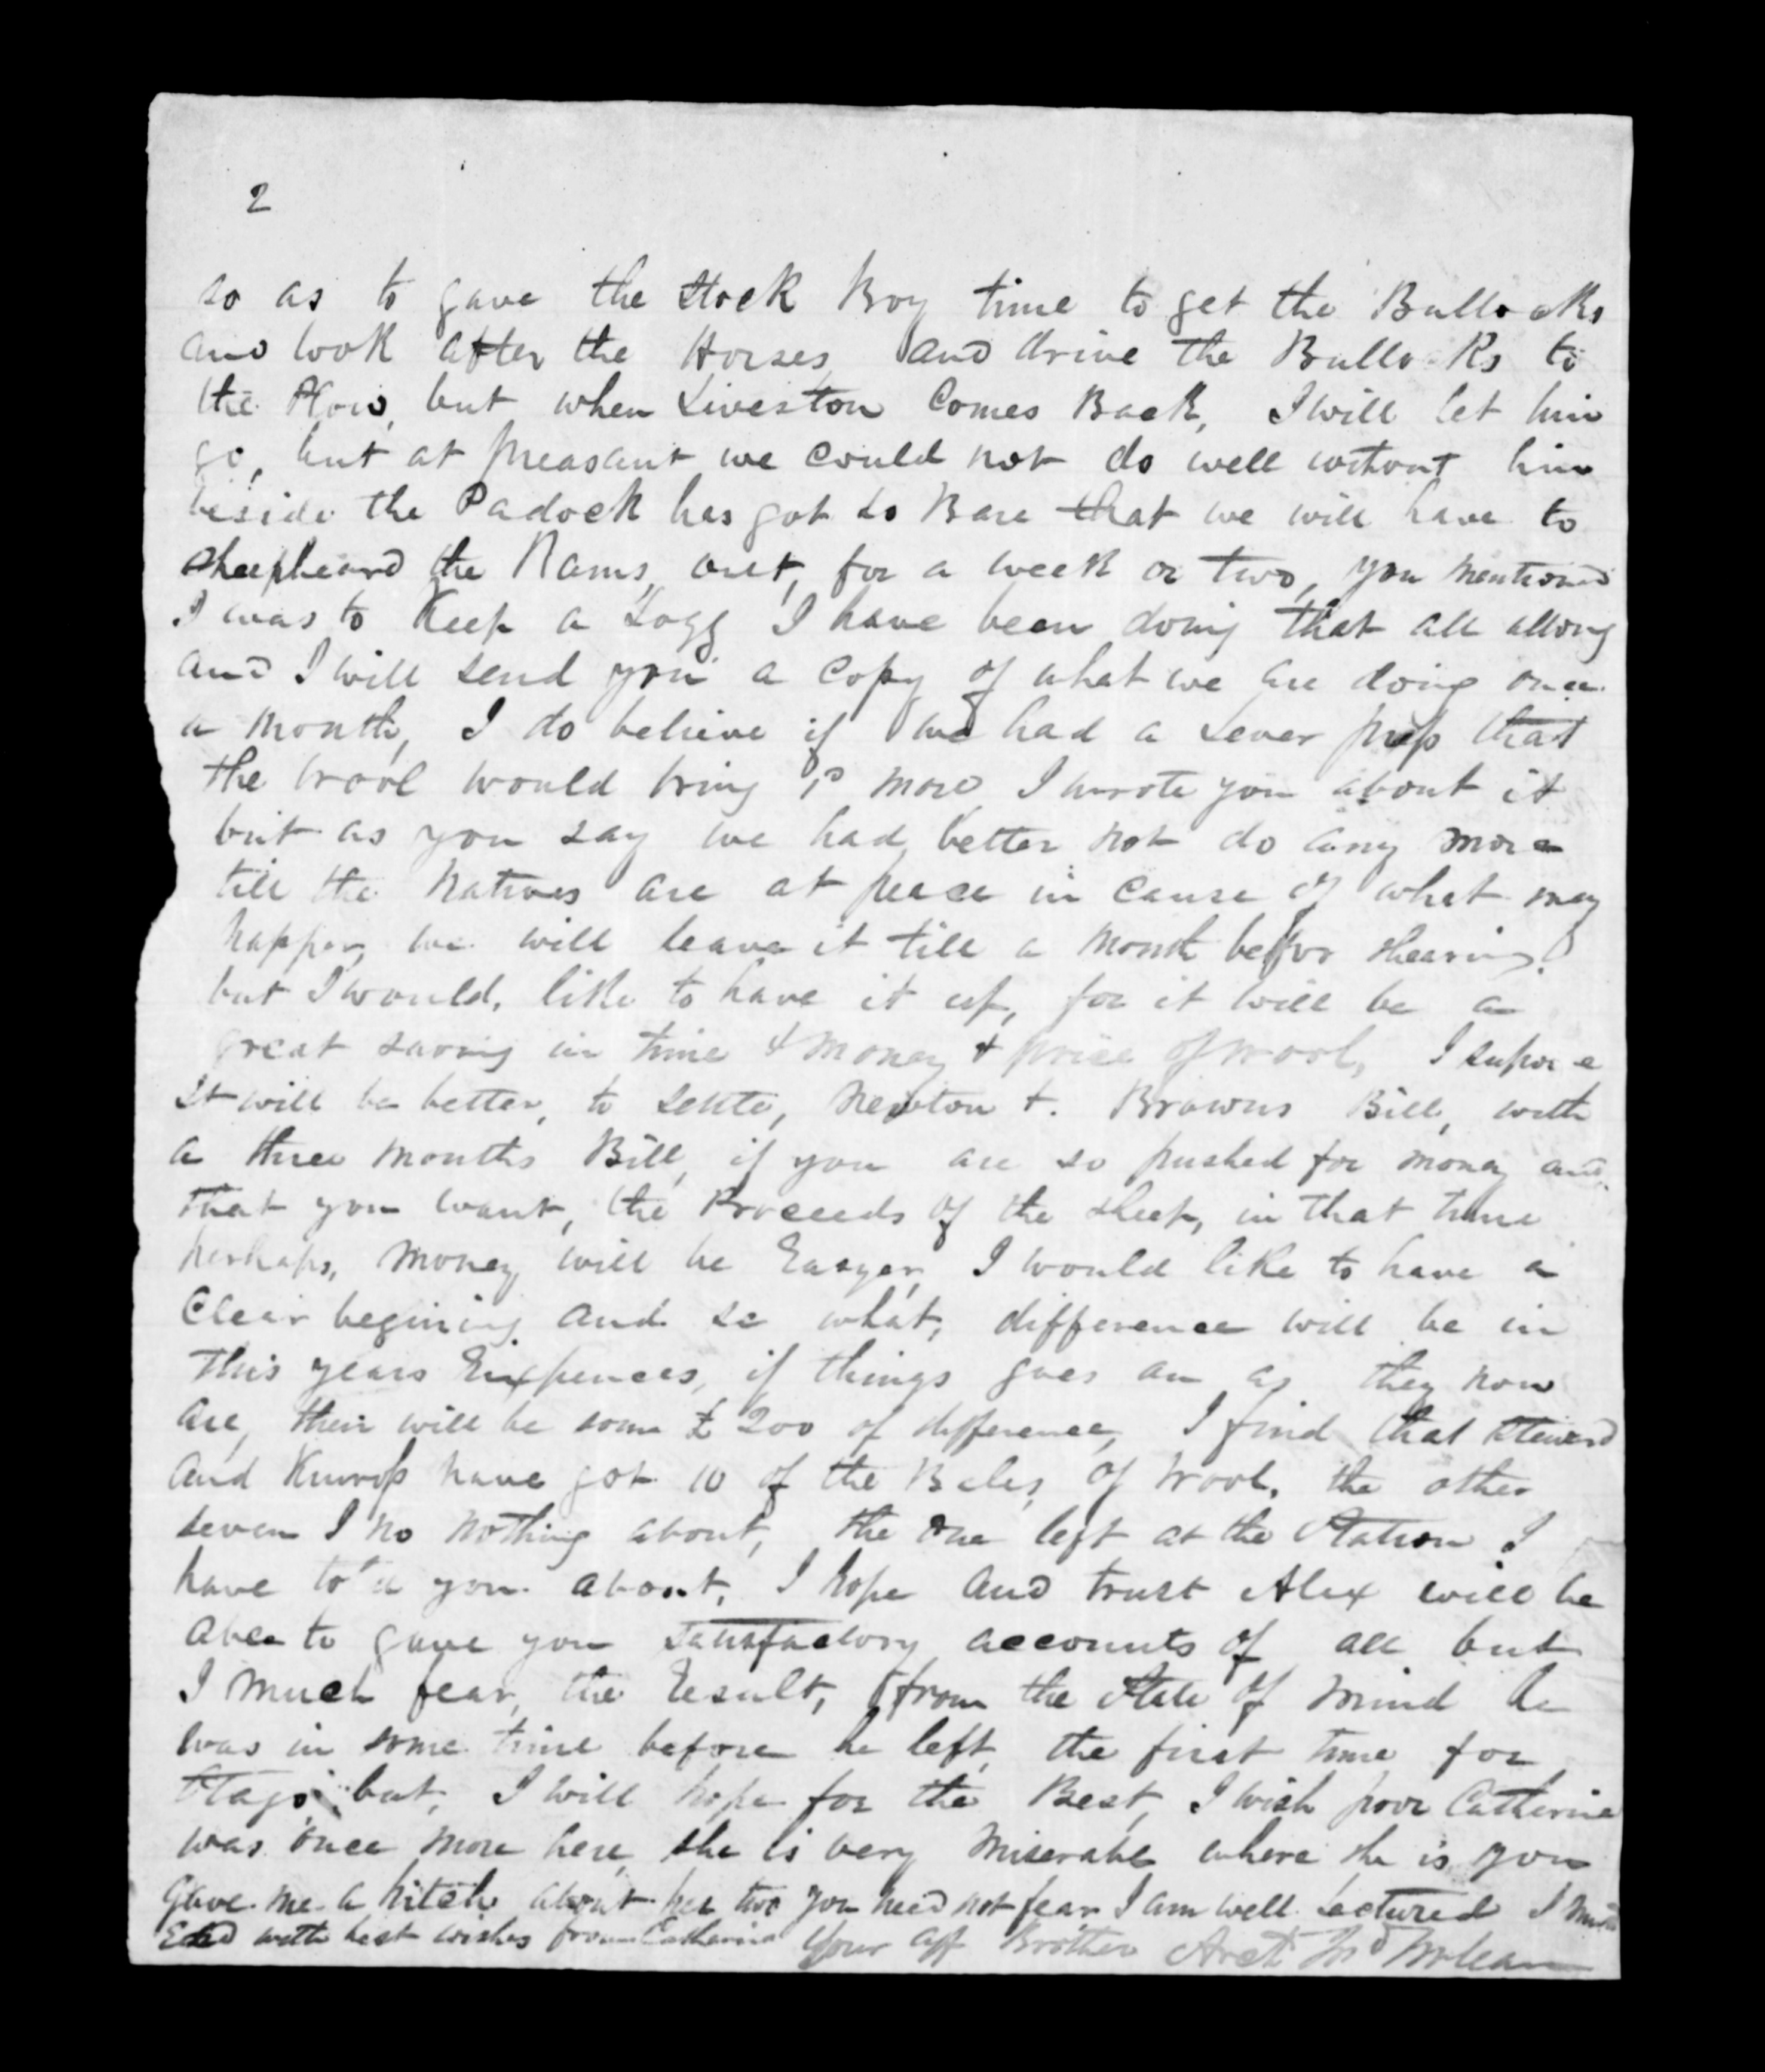 2
so as to gave the Stock Boy time to get the Bullocks
and look after the Horses, and drive the Bullocks to
the Plow, but when Liveston Comes Back, I will let him
go, but at preasant we could not do well without him
beside the Padock has got so Bare that we will have to
sheepheard the Rams, out, for a week or two, you mentioned
I was to Keep a Logg I have been doing that all allong
and I will send you a Copy of what we are doing once
a month, I do believe if we had a Lever press that
the wool would bring more I wrote you about it
but as you say we had better not do any more
till the Natives are at peace in Cause of what may
happen, we will leave it till a month befor shearing
but I would, like to have it up, for it will be a
great saving in time & money & price of wool, I supose
it will be better, to settle, Newton &. Browns Bill, with
a three months Bill, if you are so pushed for money and
that you want, the Proceeds of the sheep, in that time
perhaps, money will be Easyer, I would like to have a
Clear begining and se what, difference will be in
this years Expences, if things goes an as they now
are, their will be some £200 of difference, I find that Steward
and Kinross have got 10 of the Bales, of wool, the other
seven I no nothing about, the one left at the Station I
have told you about, I hope and trust Alex will be
able to gave you satisfactory accounts of all but
I much fear, the Result, from the State of mind he
was in some time before he left, the first time, for
Otago, but, I will hope for the Best, I wish poor Catherine
was once more here, she is very miserable where she is you
gave me a hitch about her two you need not fear I am well Lectured I must
End with best wishes from Catherine Your aff Brother Archd Jno McLean